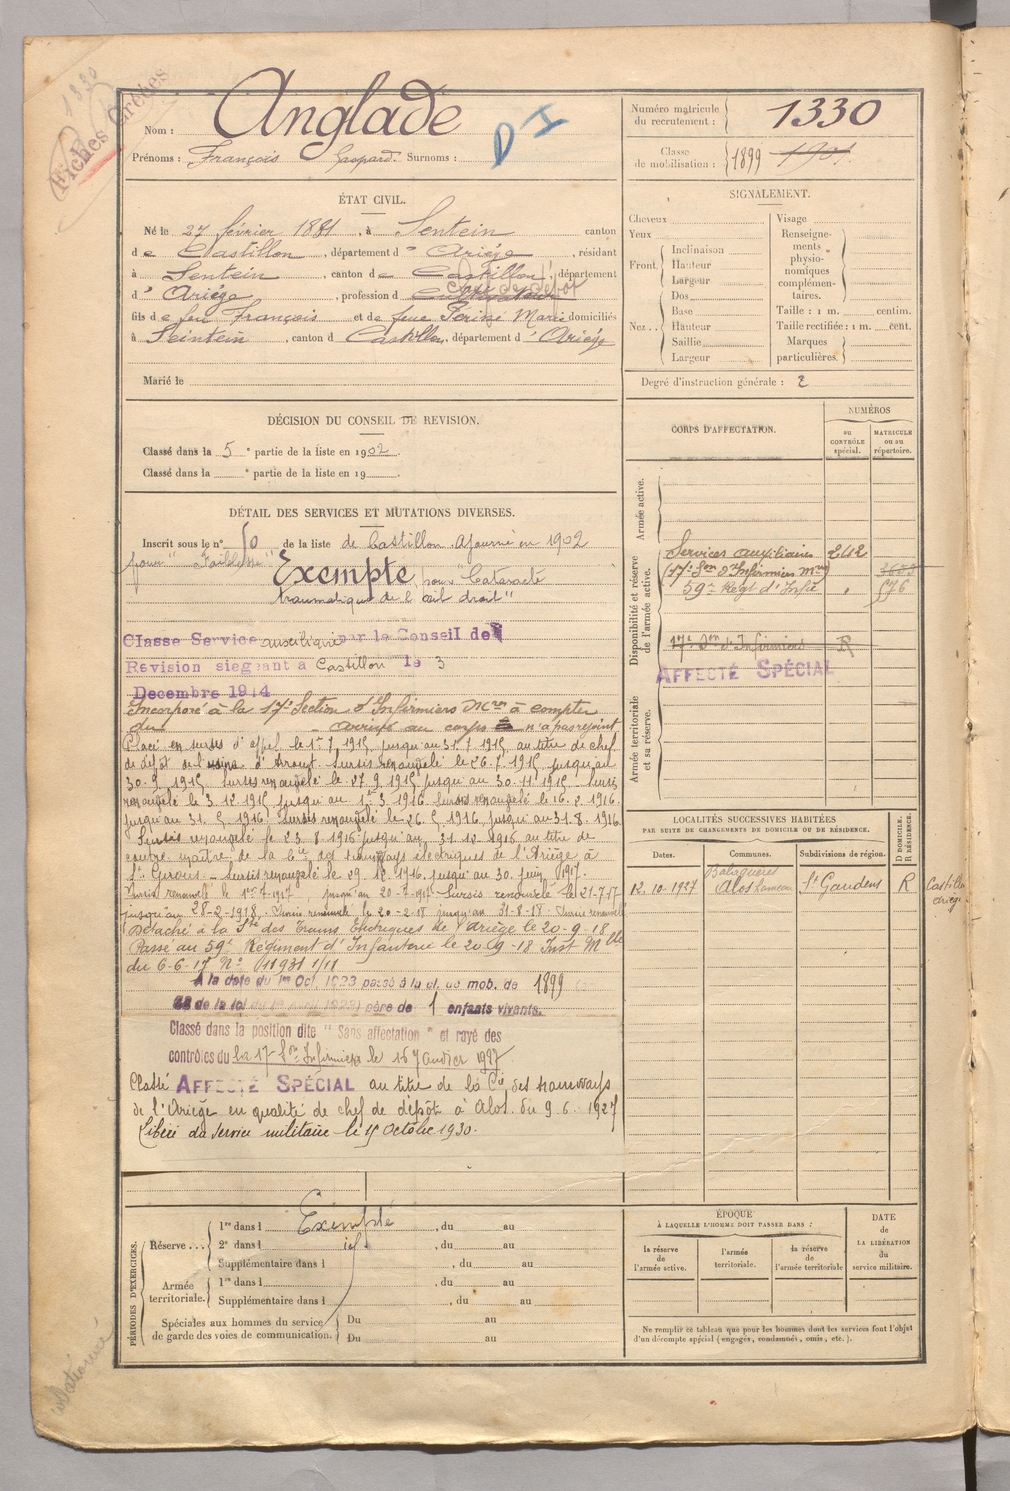 1330
Fiches Créées
Nom : Anglade
D I
Prénoms : François Gaspard. Surnoms :
Numéro matricule du recrutement : 1330
Classe de mobilisation : 1899 1901
ÉTAT CIVIL.
Né le 27 février 1881, à Sentein canton
de Castillon, département d' Ariège, résidant
à Sentein, canton de Castillon, département
d' Ariège, profession de cultivateur chef de dépôt
fils de feu François et de feue Marie domiciliés
à Seintein, canton d Castillon, département d' Ariège
Marié le
SIGNALEMENT.
Cheveux
Yeux
Front. Inclinaison
Hauteur
Largeur
Nez.. Dos
Base
Hauteur
Saillie
Largeur
Visage
Renseigne-
ments
physio-
nomiques
complémen-
taires.
Taille : 1 m. centim.
Taille rectifiée : 1 m. cent.
Marques
particulières.
Degré d'instruction générale : 2
DÉCISION DU CONSEIL DE REVISION.
Classé dans la 5e partie de la liste en 1902.
Classé dans la e partie de la liste en 19 .
CORPS D'AFFECTATION.
NUMÉROS
au CONTRÔLE spécial.
MATRICULE ou au répertoire.
Armée active.
Disponibilité et réserve de l'armée active.
Services auxiliaires 242
(17e Son d'Infirmiers Mres)
59e Régt d'Infie 676
17e Son d'Infirmiers R
AFFECTÉ SPÉCIAL
Armée territoriale et sa réserve.
DÉTAIL DES SERVICES ET MUTATIONS DIVERSES.
Inscrit sous le n° 50 de la liste de Castillon. Ajourné en 1902
pour "Faiblesse" Exempté pour "Cataracte
traumatique de l'œil droit"
Classe Service auxiliaire par le Conseil de
Revision siegeant à Castillon le 3
Decembre 1914
Incorporé à la 17e Section d'Infirmiers Mres à compter
du arrivé au corps n'a pas rejoint
Placé en sursis d'appel le 1er 7 1915 jusqu'au 31.7.1915 au titre de chef
de dépôt de l'usine d'Arrout Sursis renouvelé le 26.7.1915 jusqu'au
30.9.1915 Sursis renouvelé le 27.9.1915 jusqu'au 30.11.1915 Sursis
renouvelé le 3.12.1915 jusqu'au 1er 3 1916 Sursis renouvelé le 16.2.1916.
jusqu'au 31.5.1916 Sursis renouvelé le 26.5.1916, jusqu'au 31.8.1916.
Sursis renouvelé le 23.8.1916 jusqu'au 31.12.1916 au titre de
contre maître de la Cie des tramways électriques de l'Ariège à
St Girons - Sursis renouvelé le 29.12.1916 jusqu'au 30 juin 1917.
Sursis renouvelé le 1er-7-1917, jusqu'au 20-7-1917 Sursis renouvelé le 21-7-17
jusqu'au 28-2-1918. Sursis renouvelé le 20-2-18 jusqu'au 31-8-18. Sursis renouvelé
Détaché à la Sté des Trams Electriques de l'Ariège le 20-9-18
Passé au 59e Régiment d'Infanterie le 20-9-18 Inst Mlle
du 6-6-17 No 11931 1/11
A la date du 1er Oct. 1923 passé à la cl. de mob. de 1899
de la loi du 1er avril 1923) père de 1 enfants vivants.
Classé dans la position dite "Sans affectation" et rayé des
contrôles du la 17e Son Infirmiers le 16 Janvier 1927
Classé AFFECTÉ SPÉCIAL au titre de la Cie des tramways
de l'Ariège en qualité de chef de dépôt à Alos. du 9 6 1927
Libéré du service militaire le 15 Octobre 1930.
LOCALITÉS SUCCESSIVES HABITÉES
PAR SUITE DE CHANGEMENTS DE DOMICILE OU DE RÉSIDENCE.
Dates. Communes. Subdivisions de région. D DOMICILE. R RÉSIDENCE.
Balaguères
12.10-1927 Alos hameau St Gaudens R Castillon
Ariège
PÉRIODES D'EXERCICES.
Réserve... 1re dans l Exempté, du au
2e dans l , du au
Supplémentaire dans l , du au
Armée territoriale. 1re dans l , du au
Supplémentaire dans l , du au
Spéciales aux hommes du service de garde des voies de communication. Du au
Du au
ÉPOQUE
À LAQUELLE L'HOMME DOIT PASSER DANS :
la réserve de l'armée active.
l'armée territoriale.
la réserve de l'armée territoriale
DATE de LA LIBÉRATION du service militaire.
Ne remplir ce tableau que pour les hommes dont les services font l'objet
d'un décompte spécial (engagés, condamnés, omis, etc.).